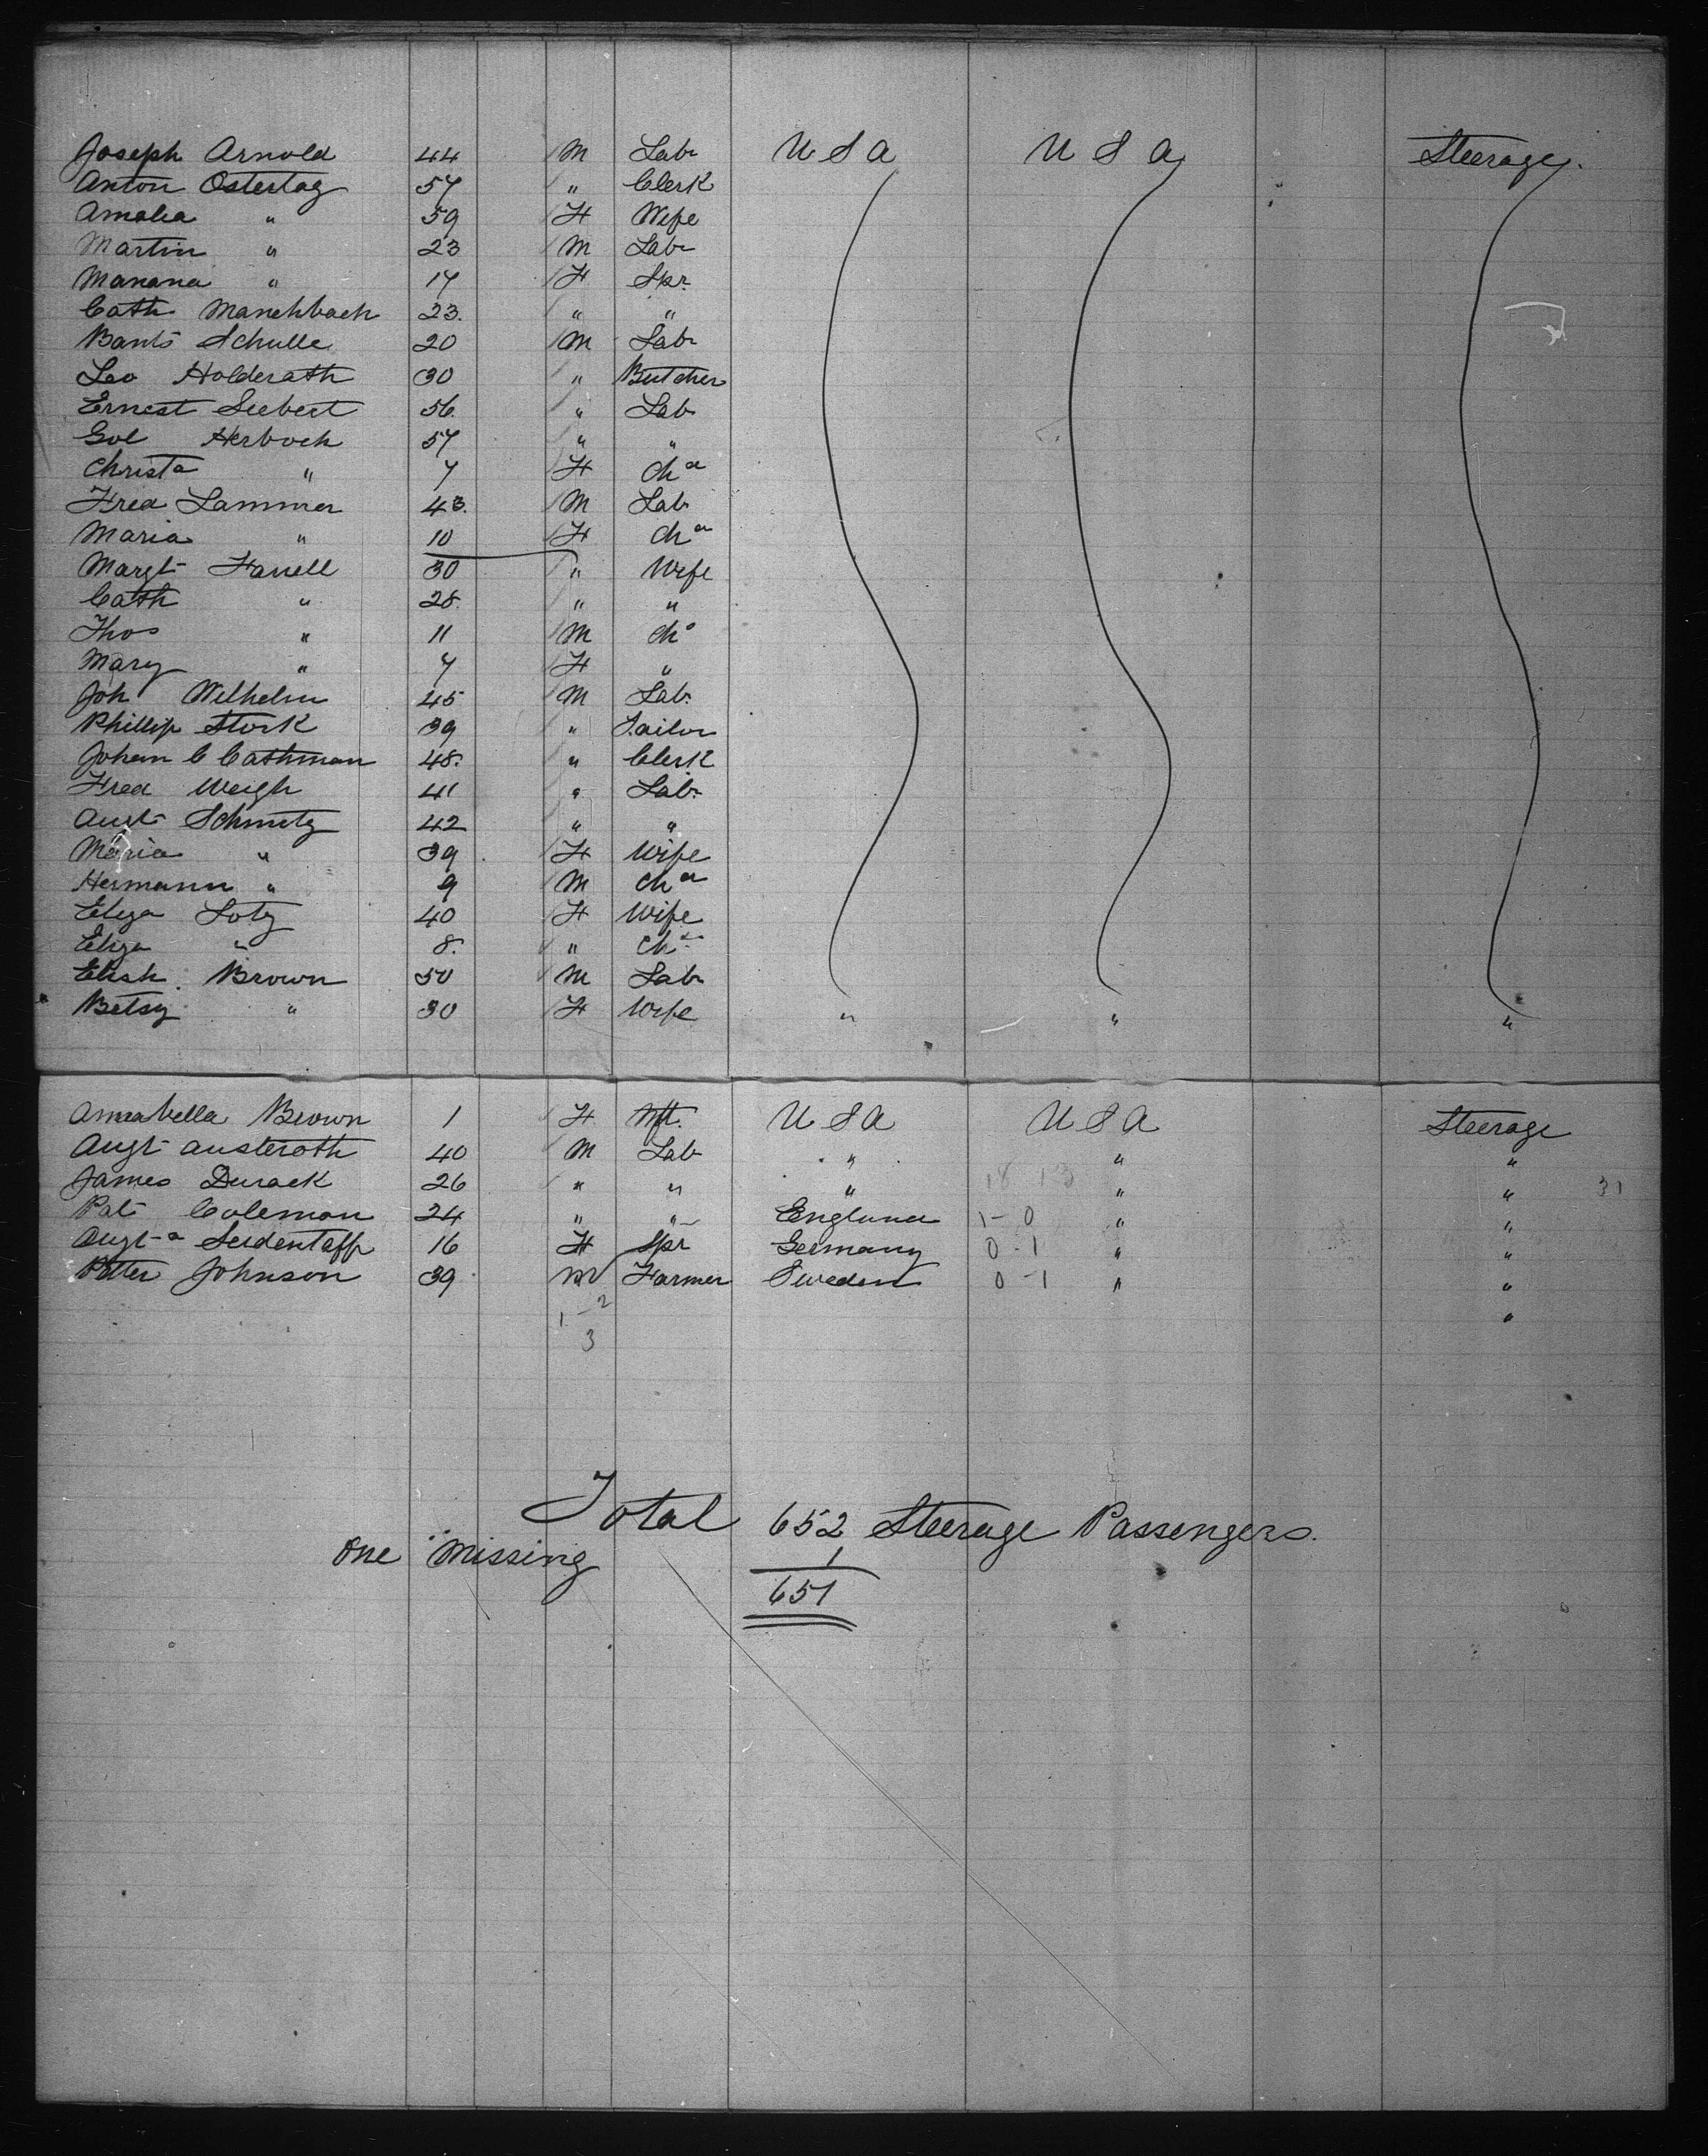 Joseph Arnold 44 M Lab U S A U S A Steerage.
Anton Ostertag 57 " Clerk
Amalia " 59 F Wife
Martin " 23 M Lab
Mariana " 17 F Spr.
Cath Manchbach 23. " "
Schulle 20 M Lab
Leo Holderath 30 " Butcher
Ernest Seebert 56. " Lab
Gol Herboch 57 " "
Christa " 7 F Chd
Fred Lammer 43. M Lab
Maria " 10 F Chd
Margt Farrell 30 " Wife
Cath " 28. " "
Thos " 11 M Chd
Mary " 7 F "
Joh Wilhelm 45 M Lab.
Phillip Stork 39 " Tailor
Johan C Cathman 48. " Clerk
Fred Weigh 41 " Lab.
Aust Schmitz 42 " "
Maria " 39 F Wife
Hermann " 9 M Chd
Eliza Lotz 40 F Wife
Eliza " 8. " Chd
Elish Brown 50 M Lab
Betsy " 30 F Wife " " "
Annabella Brown 1 F Inft. U S A U S A Steerage
Augt Austeroth 40 M Lab " " "
James Durack 26 " " " 18 13 " " 31
Pat Coleman 24 " " England 1-0 " "
Augta Seidentopp 16 F Spr Germany 0-1 " "
Peter Johnson 39 M Farmer Sweden 0-1 " "
1-2 "
3
Total 652 Steerage Passengers.
One Missing 1
651